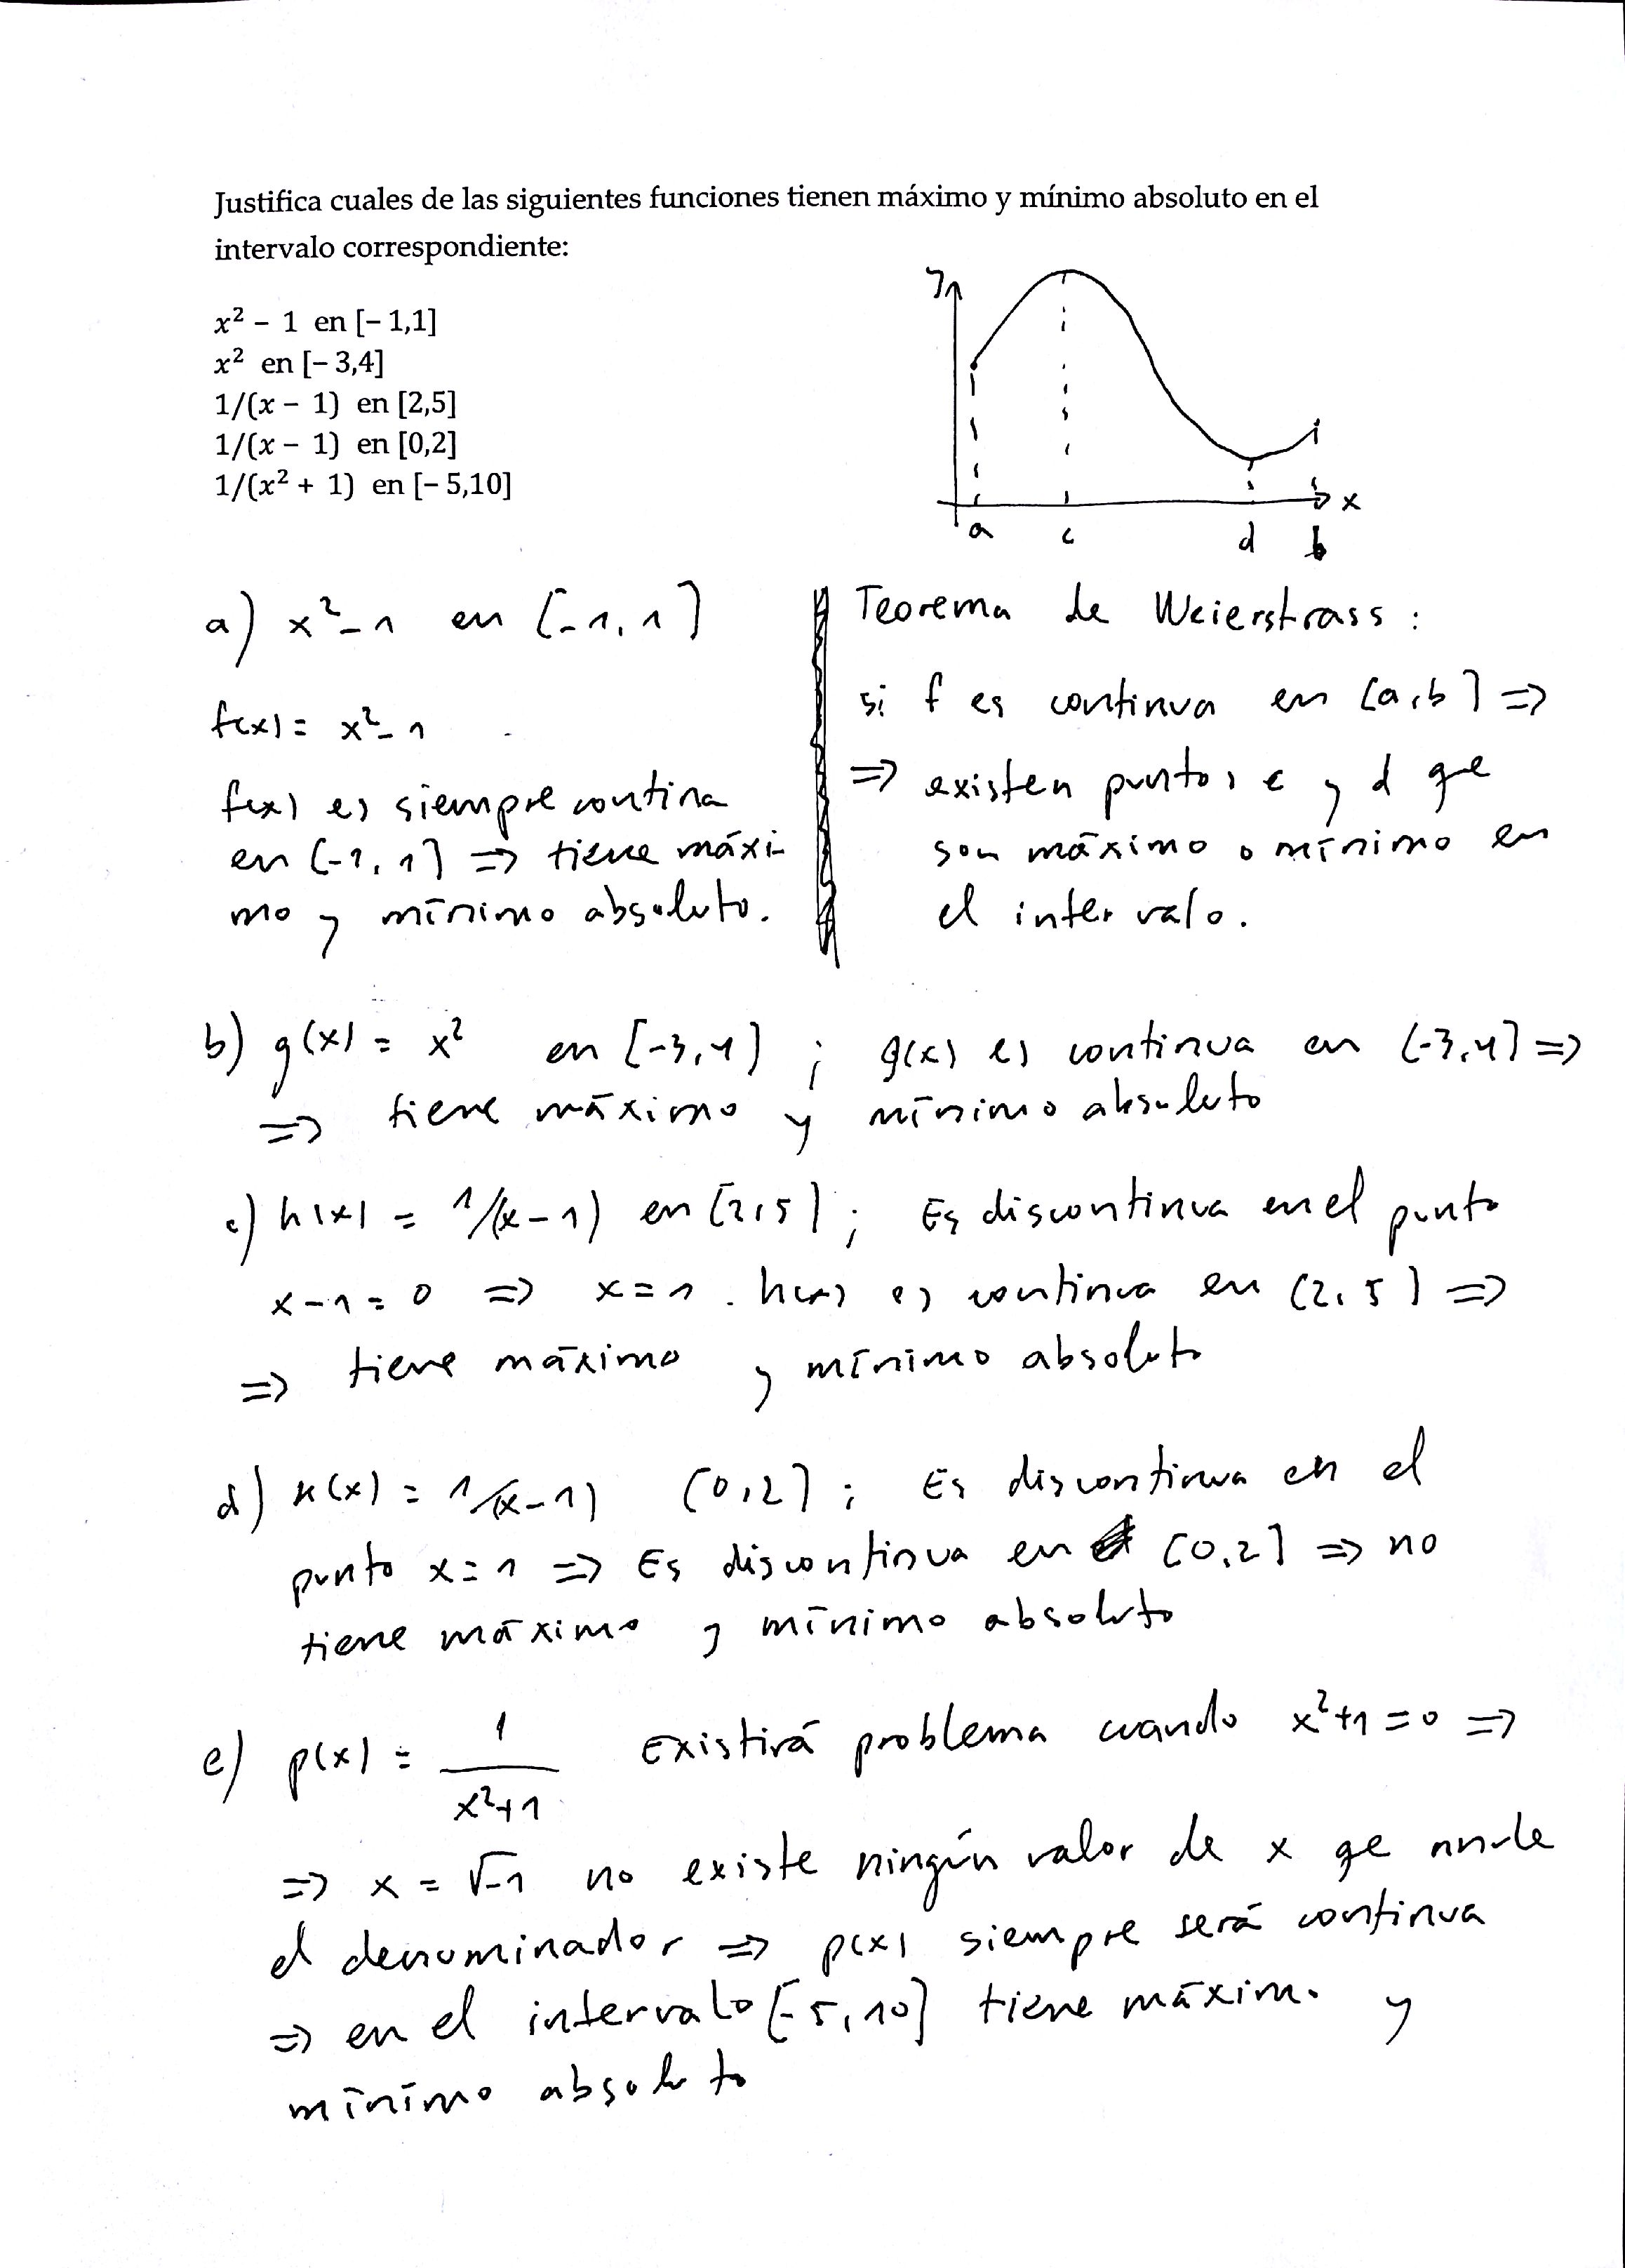 Justifica cuales de las siguientes funciones tienen máximo y mínimo absoluto en el
intervalo correspondiente:
x² − 1 en [− 1,1]
x² en [− 3,4]
1/(x − 1) en [2,5]
1/(x − 1) en [0,2]
1/(x² + 1) en [− 5,10]
y
x
a c d b
a) x²-1 en [-1,1]
f(x) = x²-1
f(x) es siempre contina
en [-1,1] => tiene máxi-
mo y mínimo absoluto.
Teorema de Weierstrass :
si f es continua en [a,b] =>
=> existen puntos c y d qe
son máximo o mínimo en
el intervalo.
b) g(x) = x² en [-3,4] ; g(x) es continua en [-3,4] =>
=> tiene máximo y mínimo absoluto
c) h(x) = 1/(x-1) en [2,5] ; Es discontinua en el punto
x-1=0 => x=1 . h(x) es continua en [2,5] =>
=> tiene máximo y mínimo absoluto
d) k(x) = 1/(x-1) [0,2] ; Es discontinua en el
punto x=1 => Es discontinua en [0,2] => no
tiene máximo y mínimo absoluto
e) p(x) = 1/(x²+1) Existirá problema cuando x²+1=0 =>
=> x = √-1 no existe ningún valor de x qe anule
el denominador => p(x) siempre será continua
=> en el intervalo [-5,10] tiene máximo y
mínimo absoluto